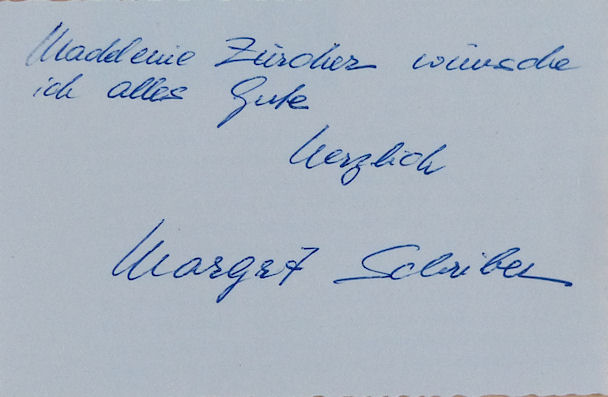 Maddenie Zürcher wünsche
ich alles Gute
Herzlich
Margrit Schriber